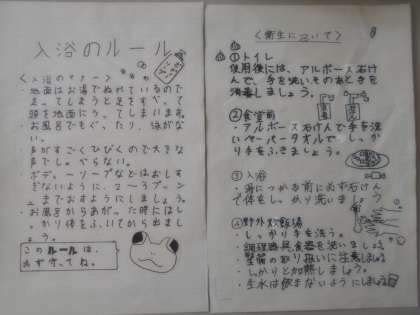 入浴のルール
〈入浴のマナー〉
・地面はお湯でぬれているので
走ってしまうと足をすべって
頭を地面にうってしまいます。
・お風呂でもぐったり、泳がな
い。
・声がすごくひびくので大きな
声でしゃべらない。
・ボディーソープなどはおしす
ぎないように、2〜3プッシュ
までおすようにしましょう。
・お風呂からあがった時にはし
っかり体をふいてから出まし
ょう。
このルールは、
必ず守ってね。
〈衛生について〉
8
①トイレ
使用後には、アルボース石け
んで、手を洗いそのあと手を
消毒しましょう。
②食堂前
・アルボース石けんで手を洗
いペーパータオルでしっか
り手をふきましょう。
③入浴
・湯につかる前に必ず石けん
で体をしっかり洗いましょう
④野外炊飯場
・しっかり手を洗う。
・調理器具食器を洗いましょう
・野菜の取り扱いに注意しましょう
・しっかりと加熱しましょう。
・生水は飲まないようにしましょう